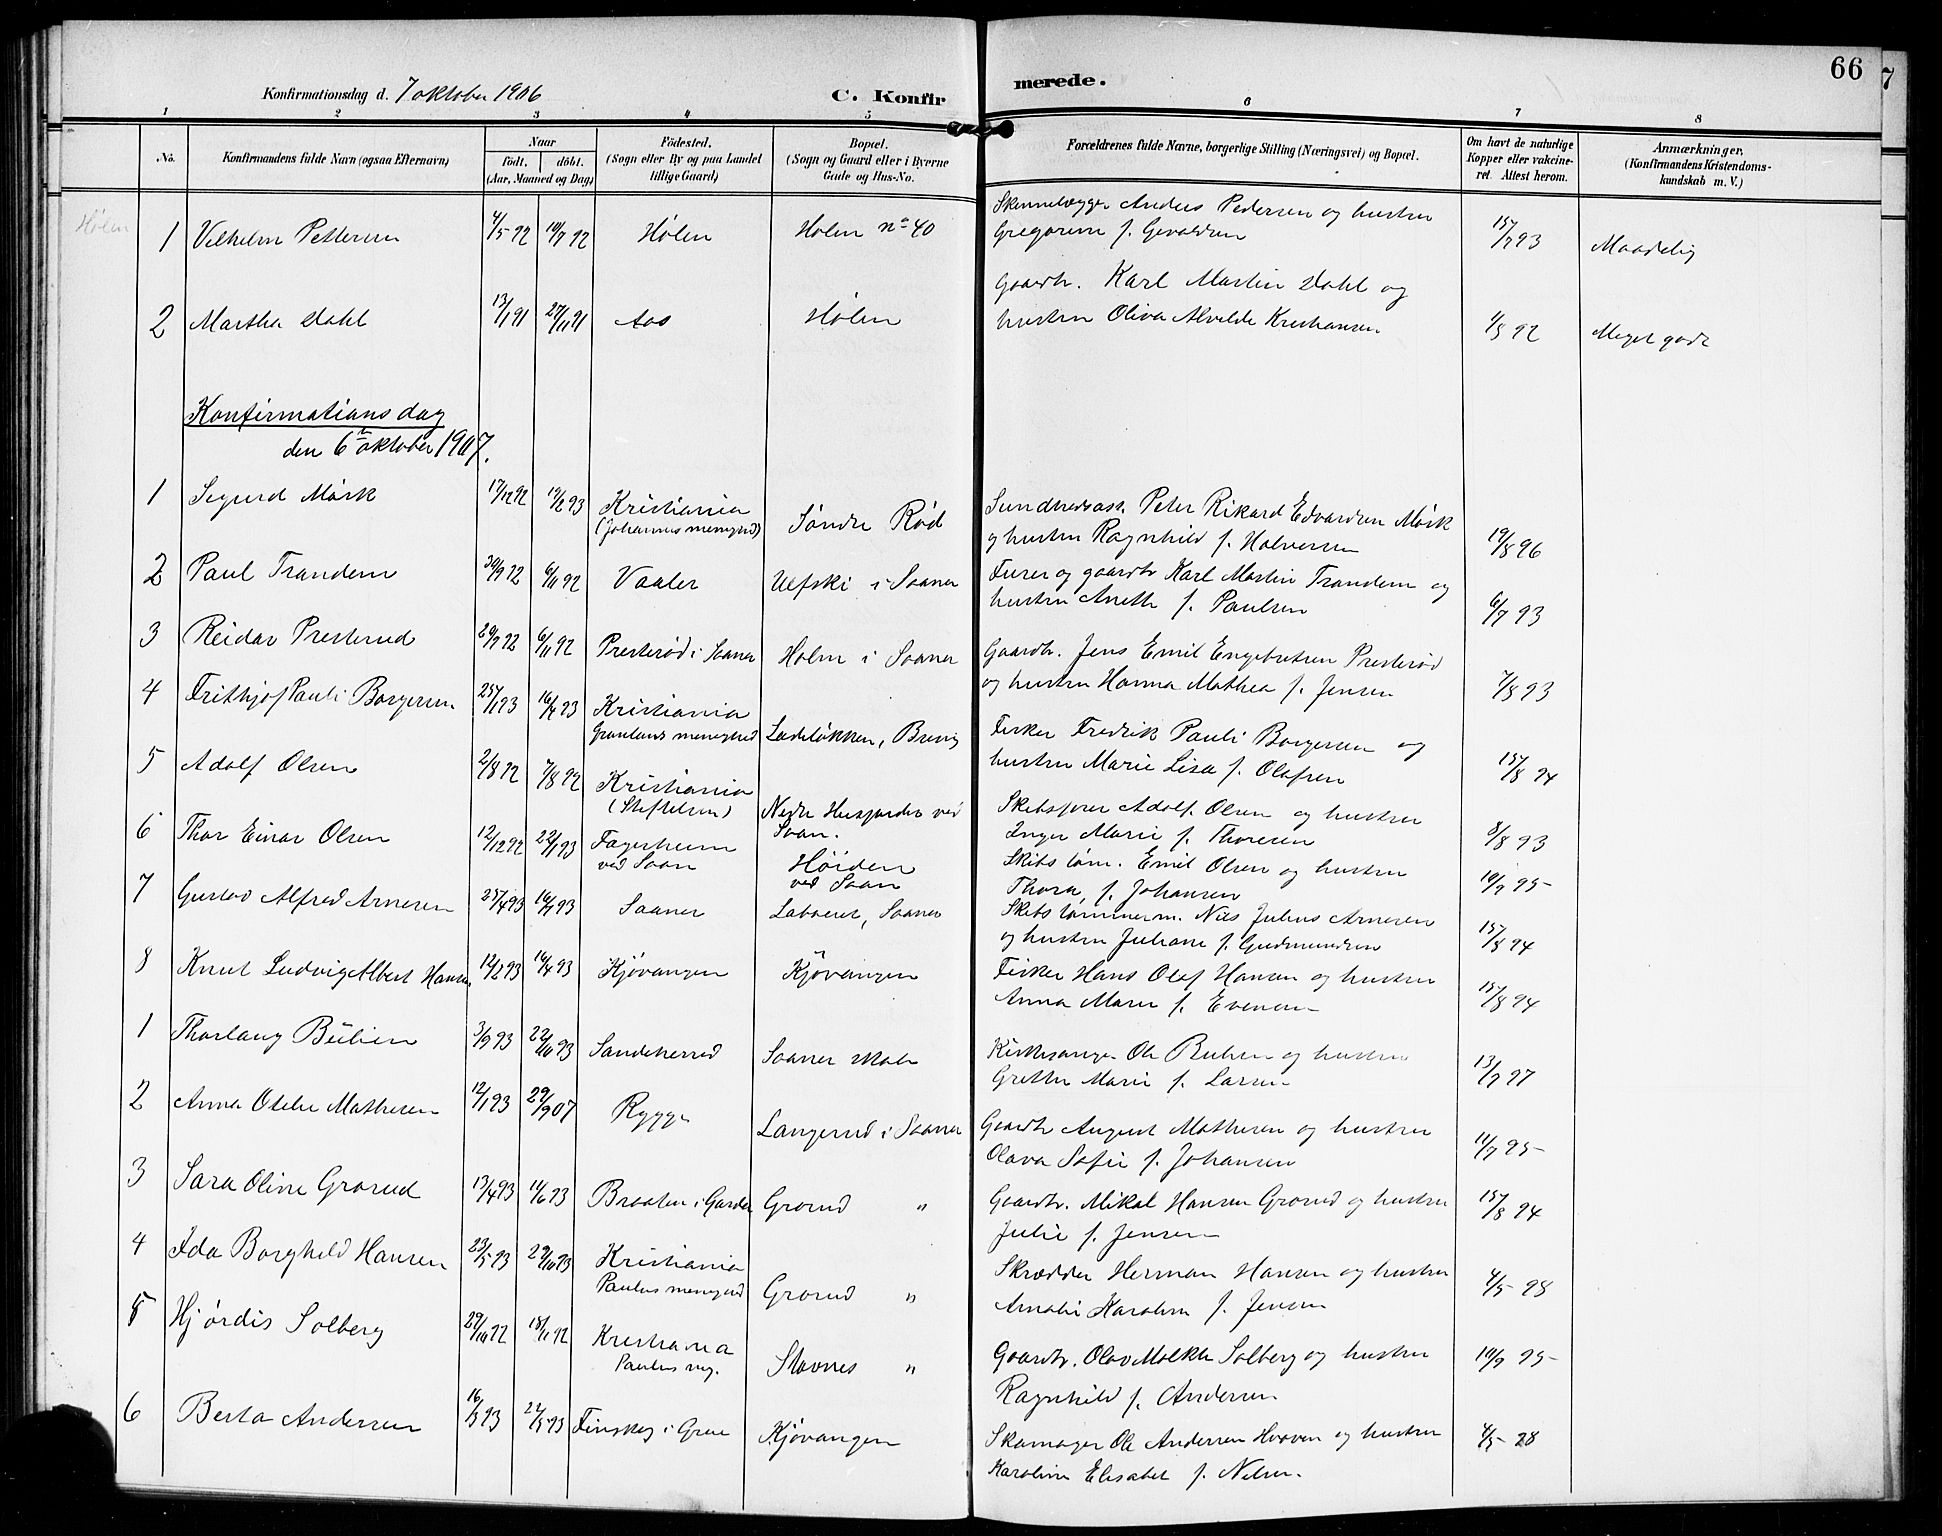 66
7
Konfirmationsdag d. 7 oktober 1906
C. Konfirmerede.
1 2 3 4 5 6 7 8
No.
Konfirmandens fulde Navn (ogsaa Efternavn)
Naar
födt, döbt.
(Aar, Maaned og Dag)
Födested.
(Sogn eller By og paa Landet
tillige Gaard)
Bopæl.
(Sogn og Gaard eller i Byerne
Gade og Hus-No.
Forældrenes fulde Navne, borgerlige Stilling (Næringsvei) og Bopæl.
Om havt de naturlige
Kopper eller vakcine-
ret. Attest herom.
Anmærkninger,
(Konfirmandens Kristendoms-
kundskab m. V.)
Hølen
1 Vilhelm Pettersen 4/5 92 10/7 92 Hølen Holen no 40 Anders Pedersen og hustru
Gregorine f. 15/7 93 Maadelig
2 Martha Dahl 13/1 91 27/11 91 Aas Hølen Gaardbr. Karl Martin Dahl og
hustru Oliva Alvilde Kristiansen 1/8 92 Meget godt
Konfirmationsdag
den 6te oktober 1907.
1 Sigurd Mørk 17/12 92 19/2 93 Kristiania
(Johannes menighed) Søndre Rød Sundhedsass. Peter Rikard Edvardsen Mørk
og hustru Ragnhild f. Halversen 19/8 96
2 Paul Trandem 30/9 92 6/11 92 Vaaler Ulfski i Saaner Furer og gaardbr Karl Martin Trandem og
hustru Aneth f. Paulsen 6/7 93
3 Reidar Presterud 29/7 92 6/11 92 Presterød i Saaner Holm i Saaner Gaardbr. Jens Emil Engebretsen Presterød
og hustru Hanna Mathea f. Jensen 7/8 93
4 Frithjof Pauli Borgersen 25/1 93 16/4 93 Kristiania
Grønlans menighed Ladeløkken, Brevig Fisker Fredrik Pauli Borgersen og
hustru Marie Lisa f. Olafsen 15/8 94
5 Adolf Olsen 2/8 92 7/8 92 Kristiania
(Stiftelsen) Nedre Husjordet ved
Soon. Skibsfører Adolf Olsen og hustru
Inger Marie f. Thoresen 8/8 93
6 Thor Einar Olsen 12/12 92 22/1 93 Fagerheim
ved Soon Høiden
ved Soon Skibs tøm. Emil Olsen og hustru
Thora, f. Johansen 10/7 95
7 Gustav Alfred Arnesen 25/4 93 16/7 93 Saaner Labaret, Saaner Skibstømmerm. Nils Julius Arnesen
og hustru Juliane f. Gudmundsen 15/8 94
8 Knut Ludvig Albert Hansen 12/2 93 16/4 93 Kjøvangen Kjøvangen Fisker Hans Olaf Hansen og hustru
Anna Marie f. Evensen 15/8 94
1 Thorlaug Bülien 3/9 93 22/10 93 Sandeherred Saaner skole Kirkesanger Ole Bulien og hustru
Grethe Marie f. Larsen 13/7 97
2 Anna Otelie Mathesen 12/1 93 29/9 07 Rygge Langerud i Saaner Gaardbr August Mathesen og hustru
Olava Sofie f. Johansen 11/7 95
3 Sara Oline Grorud 13/4 93 11/6 93 Braaten i Garder Grorud " Gaardbr. Mikal Hansen Grorud og hustru
Julie f. Jensen 15/8 94
4 Ida Borghild Hansen 23/5 93 29/10 93 Kristiania
Paulus menighed Grorud " Skrædder Herman Hansen og hustru
Amalie Karoline f. Jensen 4/5 98
5 Hjørdis Solberg 29/10 92 18/11 92 Kristiania
Paulus mg. Stavnes " Gaardbr. Olav Molkte Solberg og hustru
Ragnhild f. Andersen 10/7 95
6 Berta Andersen 16/3 93 22/5 93 Finskog i Grue Kjøvangen Skomager Ole Andersen og hustru
Karoline Elisabet f. Nilsen 4/5 98